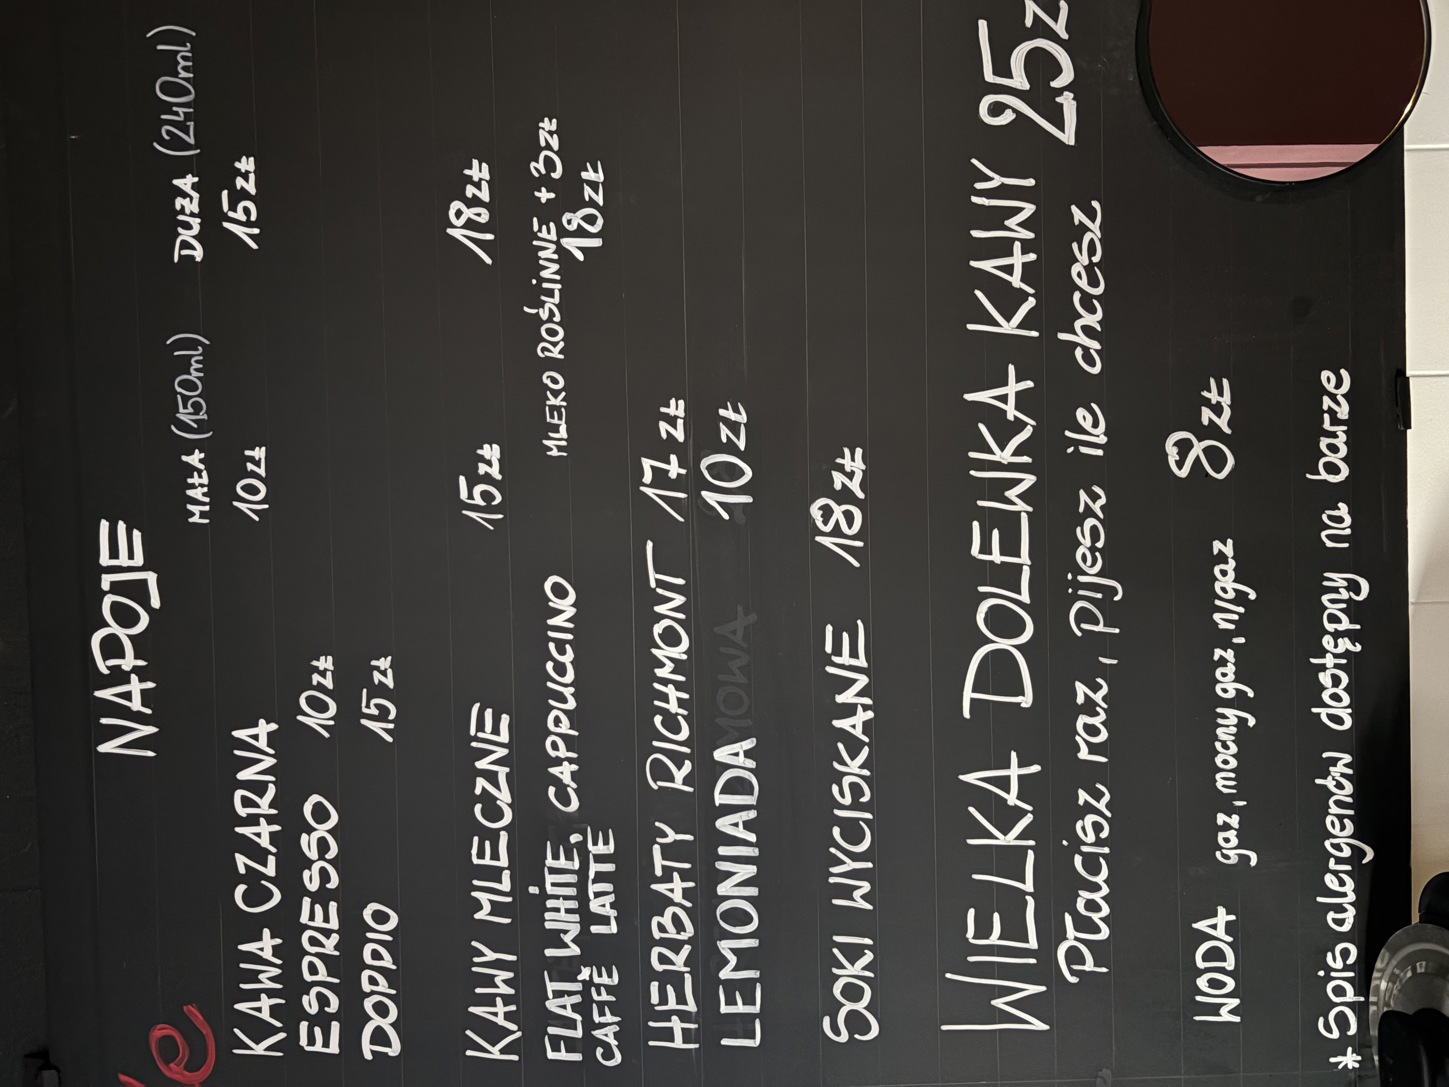 NAPOJE
MAŁA (150ml) DUŻA (240ml)
KAWA CZARNA 10zł 15zł
ESPRESSO 10zł
DOPPIO 15zł
KAWY MLECZNE 15zł 18zł
FLAT WHITE, CAPPUCCINO MLEKO ROŚLINNE +3zł
CAFFĚ LATTE 18zł
HERBATY RICHMONT 17zł
LEMONIADA 10zł
SOKI WYCISKANE 18zł
WIELKA DOLEWKA KAWY 25z
Płacisz raz, pijesz ile chcesz
WODA gaz, mocny gaz, n/gaz 8zł
*Spis alergenów dostępny na barze